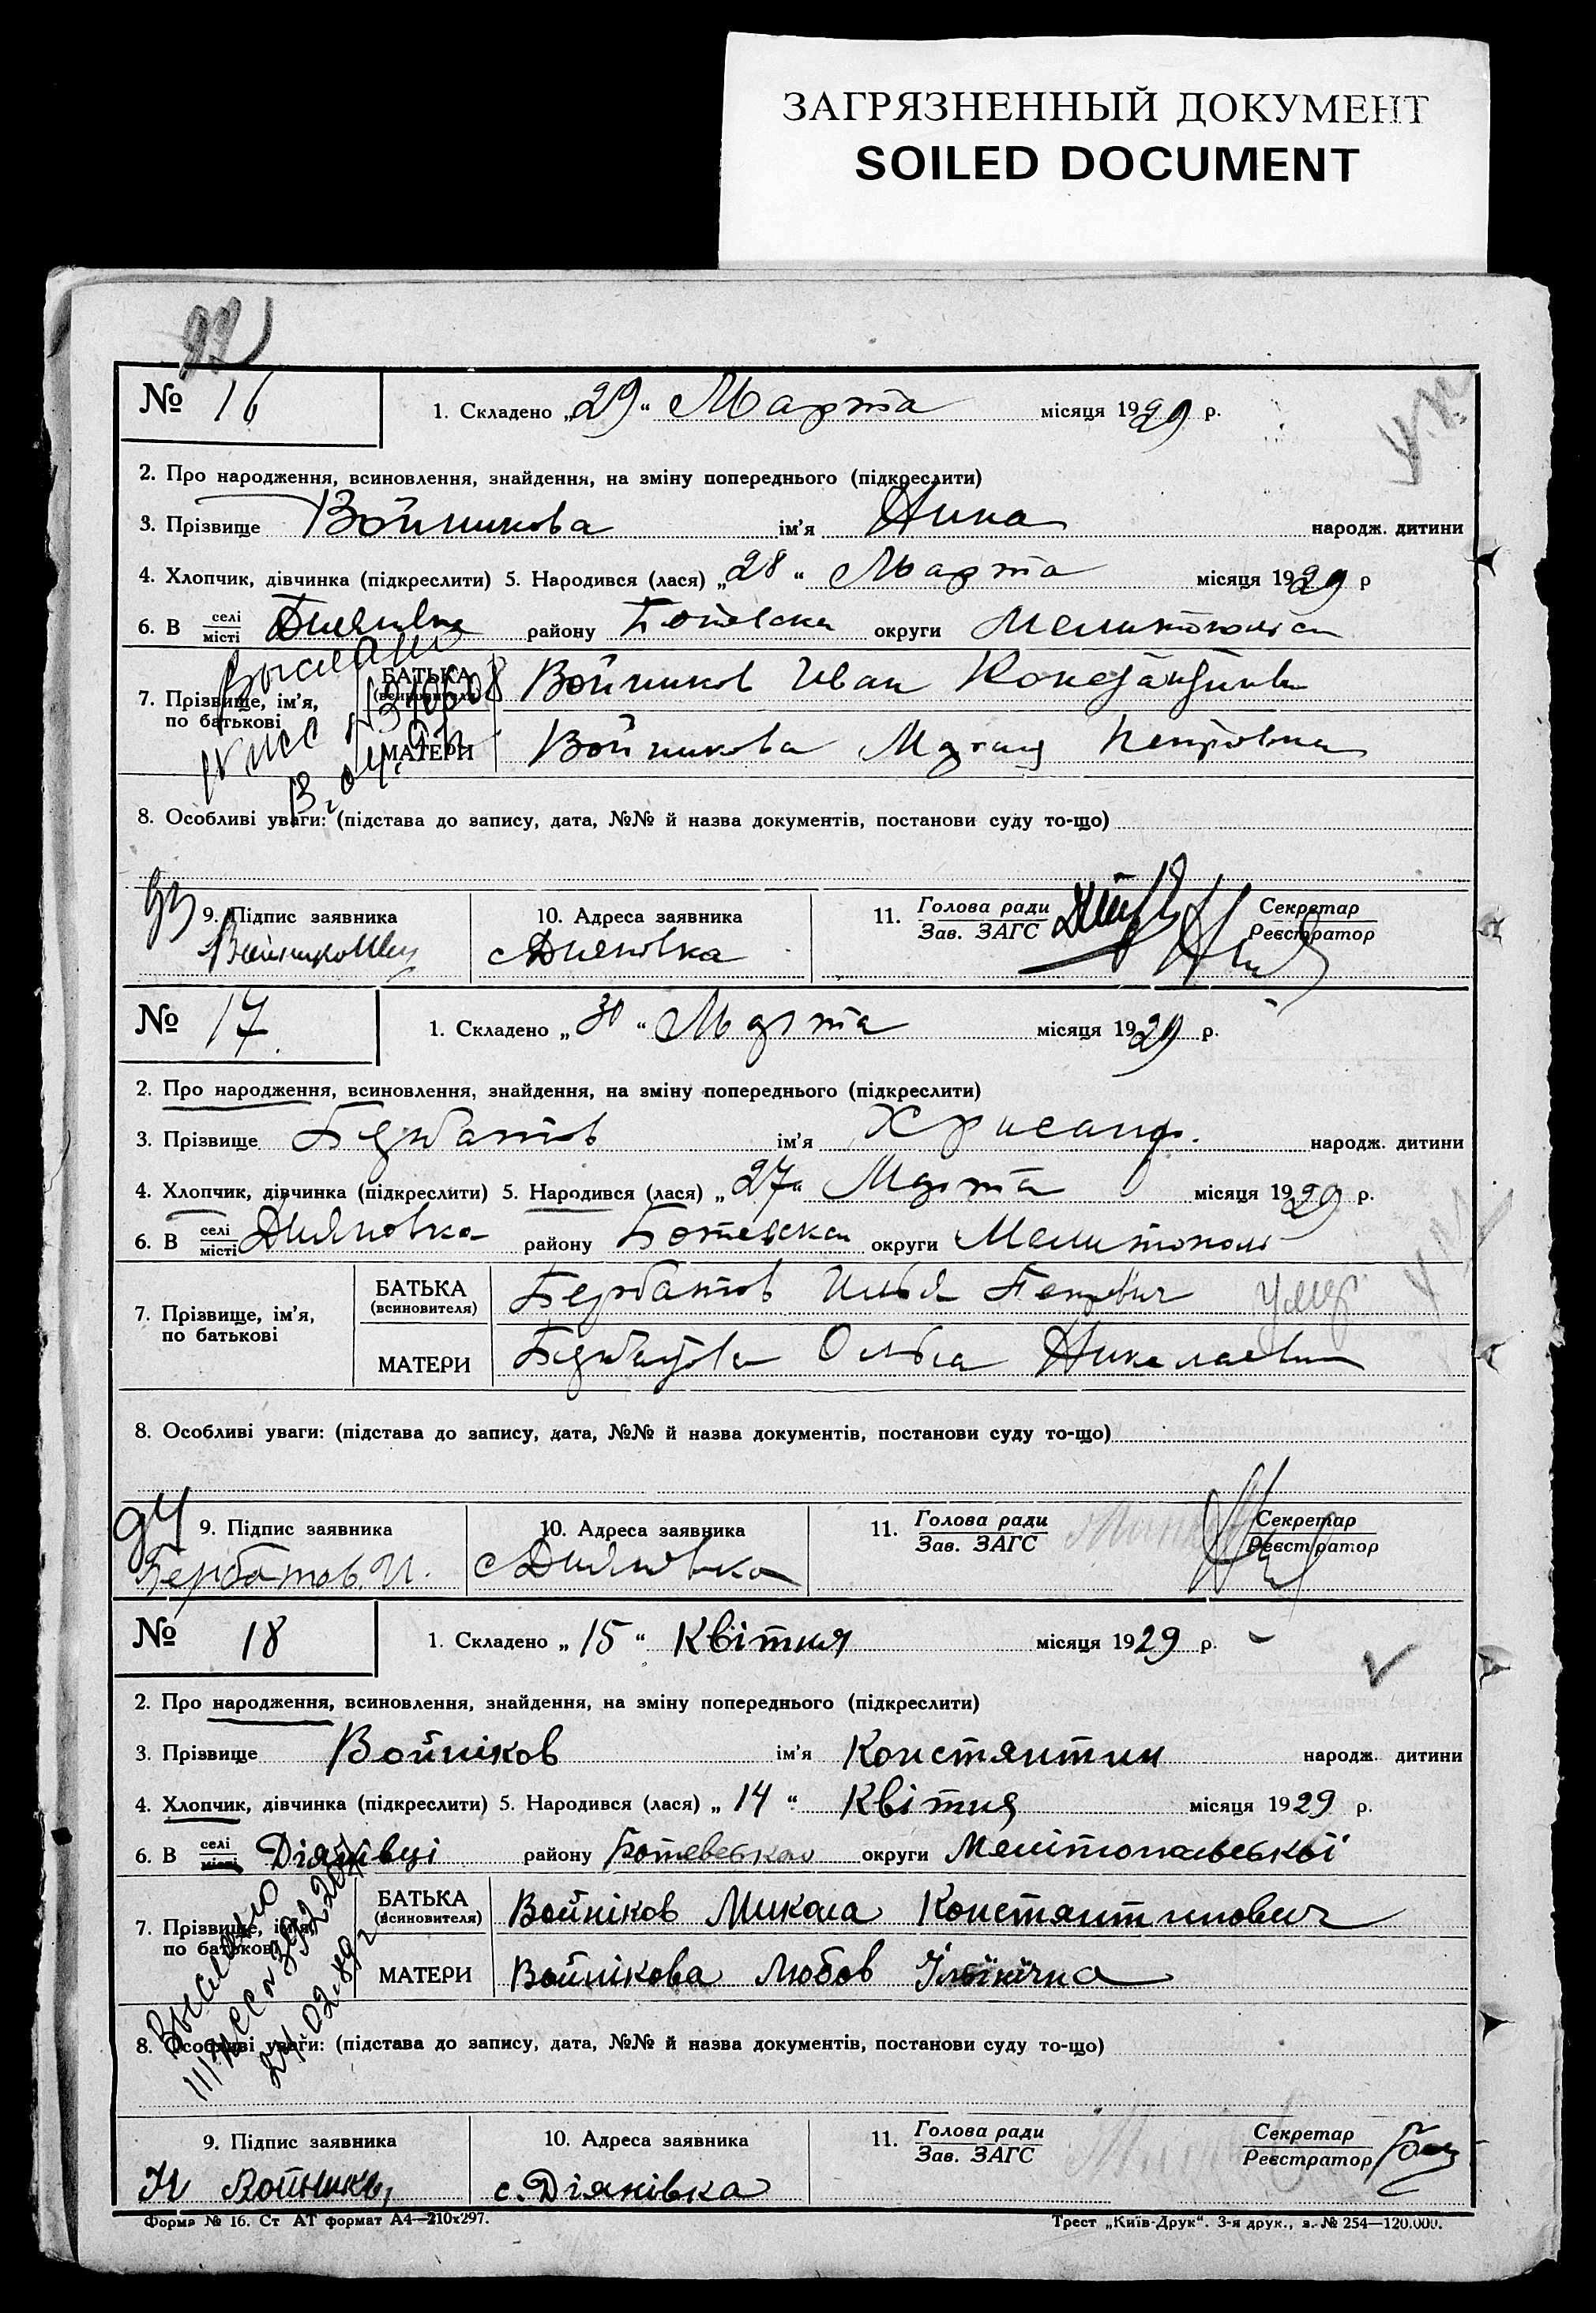 ЗАГРЯЗНЕННЫЙ ДОКУМЕНТ
SOILED DOCUMENT
№ 16
1. Складено „29“ Марта місяця 1929 р.
2. Про народження, всиновлення, знайдення, на зміну попереднього (підкреслити)
3. Прізвище Войникова ім'я Нина народж. дитини
4. Хлопчик, дівчинка (підкреслити) 5. Народився (лася) „28“ Марта місяця 1929 р
6. В селі місті району округи
7. Прізвище, ім'я, по батькові
БАТЬКА (всиновителя) Войников Иван
МАТЕРИ Войникова Петровна
8. Особливі уваги: (підстава до запису, дата, №№ й назва документів, постанови суду то-що)
9. Підпис заявника
10. Адреса заявника
11. Голова ради Зав. ЗАГС
Секретар Реєстратор
93
с Дияновка
№ 17.
1. Складено „30“ Марта місяця 1929 р.
2. Про народження, всиновлення, знайдення, на зміну попереднього (підкреслити)
3. Прізвище Бербатов ім'я Хрисанф. народж. дитини
4. Хлопчик, дівчинка (підкреслити) 5. Народився (лася) „27“ Марта місяця 1929 р.
6. В селі місті Дияновка району округи Мелитополь
7. Прізвище, ім'я, по батькові
БАТЬКА (всиновителя) Бербатов Илья Петрович
МАТЕРИ Бербатова Ольга Николаевна
8. Особливі уваги: (підстава до запису, дата, №№ й назва документів, постанови суду то-що)
94
9. Підпис заявника
10. Адреса заявника
11. Голова ради Зав. ЗАГС
Секретар Реєстратор
Бербатов. И.
с Дияновка
№ 18
1. Складено „15“ Квітня місяця 1929 р.
2. Про народження, всиновлення, знайдення, на зміну попереднього (підкреслити)
3. Прізвище Войніков ім'я Констянтин народж. дитини
4. Хлопчик, дівчинка (підкреслити) 5. Народився (лася) „14“ Квітня місяця 1929 р.
6. В селі місті Діянівці району округи Мелітопольської
7. Прізвище, ім'я, по батькові
БАТЬКА (всиновителя) Войніков Микола Констянтинович
МАТЕРИ Войнікова Любов
8. Особливі уваги: (підстава до запису, дата, №№ й назва документів, постанови суду то-що)
9. Підпис заявника
10. Адреса заявника
11. Голова ради Зав. ЗАГС
Секретар Реєстратор
с. Діянівка
Форма № 16. Ст АТ формат А4—210x297.
Трест „Київ-Друк“. 3-я друк., з. № 254—120.000.